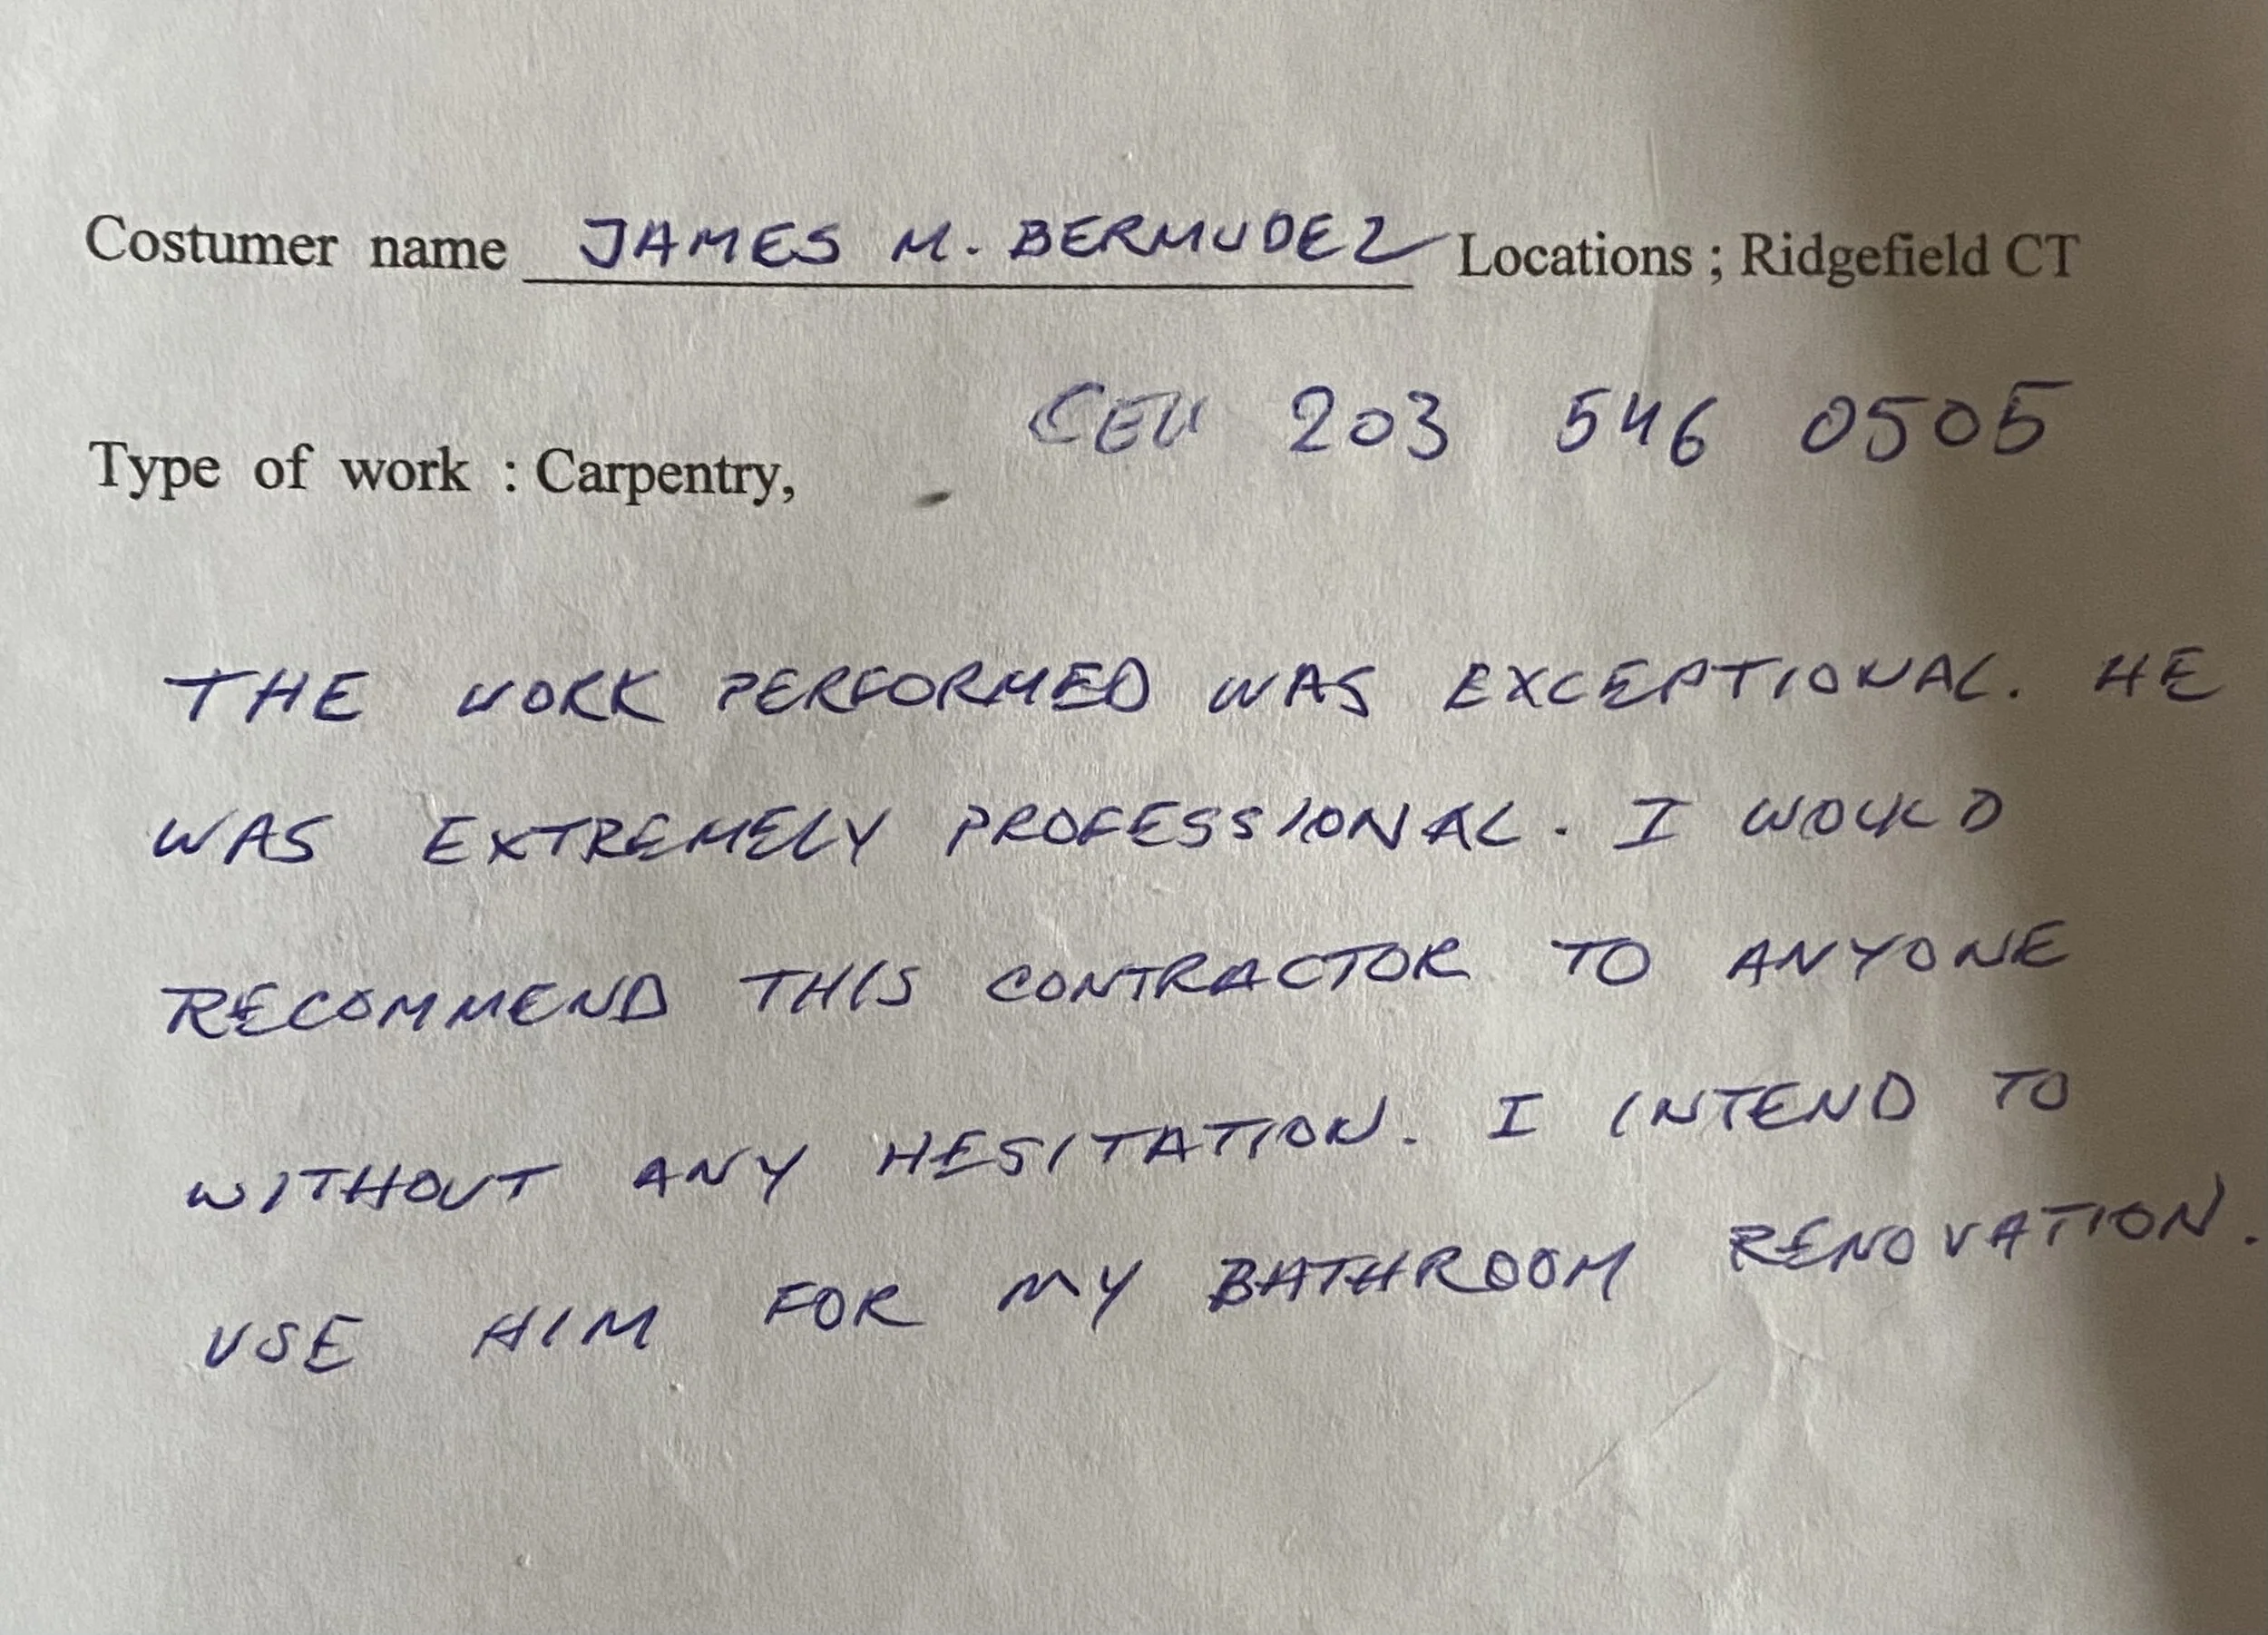 Costumer name JAMES M. BERMUDEZ Locations ; Ridgefield CT
CELL 203 546 0505
Type of work : Carpentry,
THE WORK PERFORMED WAS EXCEPTIONAL. HE
WAS EXTREMELY PROFESSIONAL. I WOULD
RECOMMEND THIS CONTRACTOR TO ANYONE
WITHOUT ANY HESITATION. I INTEND TO
USE HIM FOR MY BATHROOM RENOVATION.